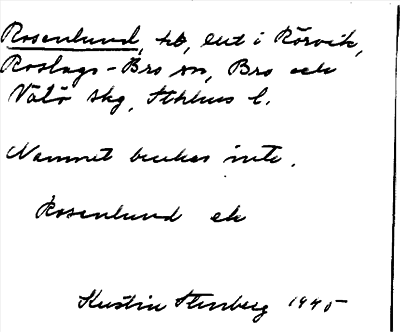 Rosenlund, hb, lut i Rörvik,
Roslags-Bro sn, Bro och
Vätö skg, Sthlms l.
Namnet brukas inte.
Rosenlund ek
Kerstin Stenberg 1945